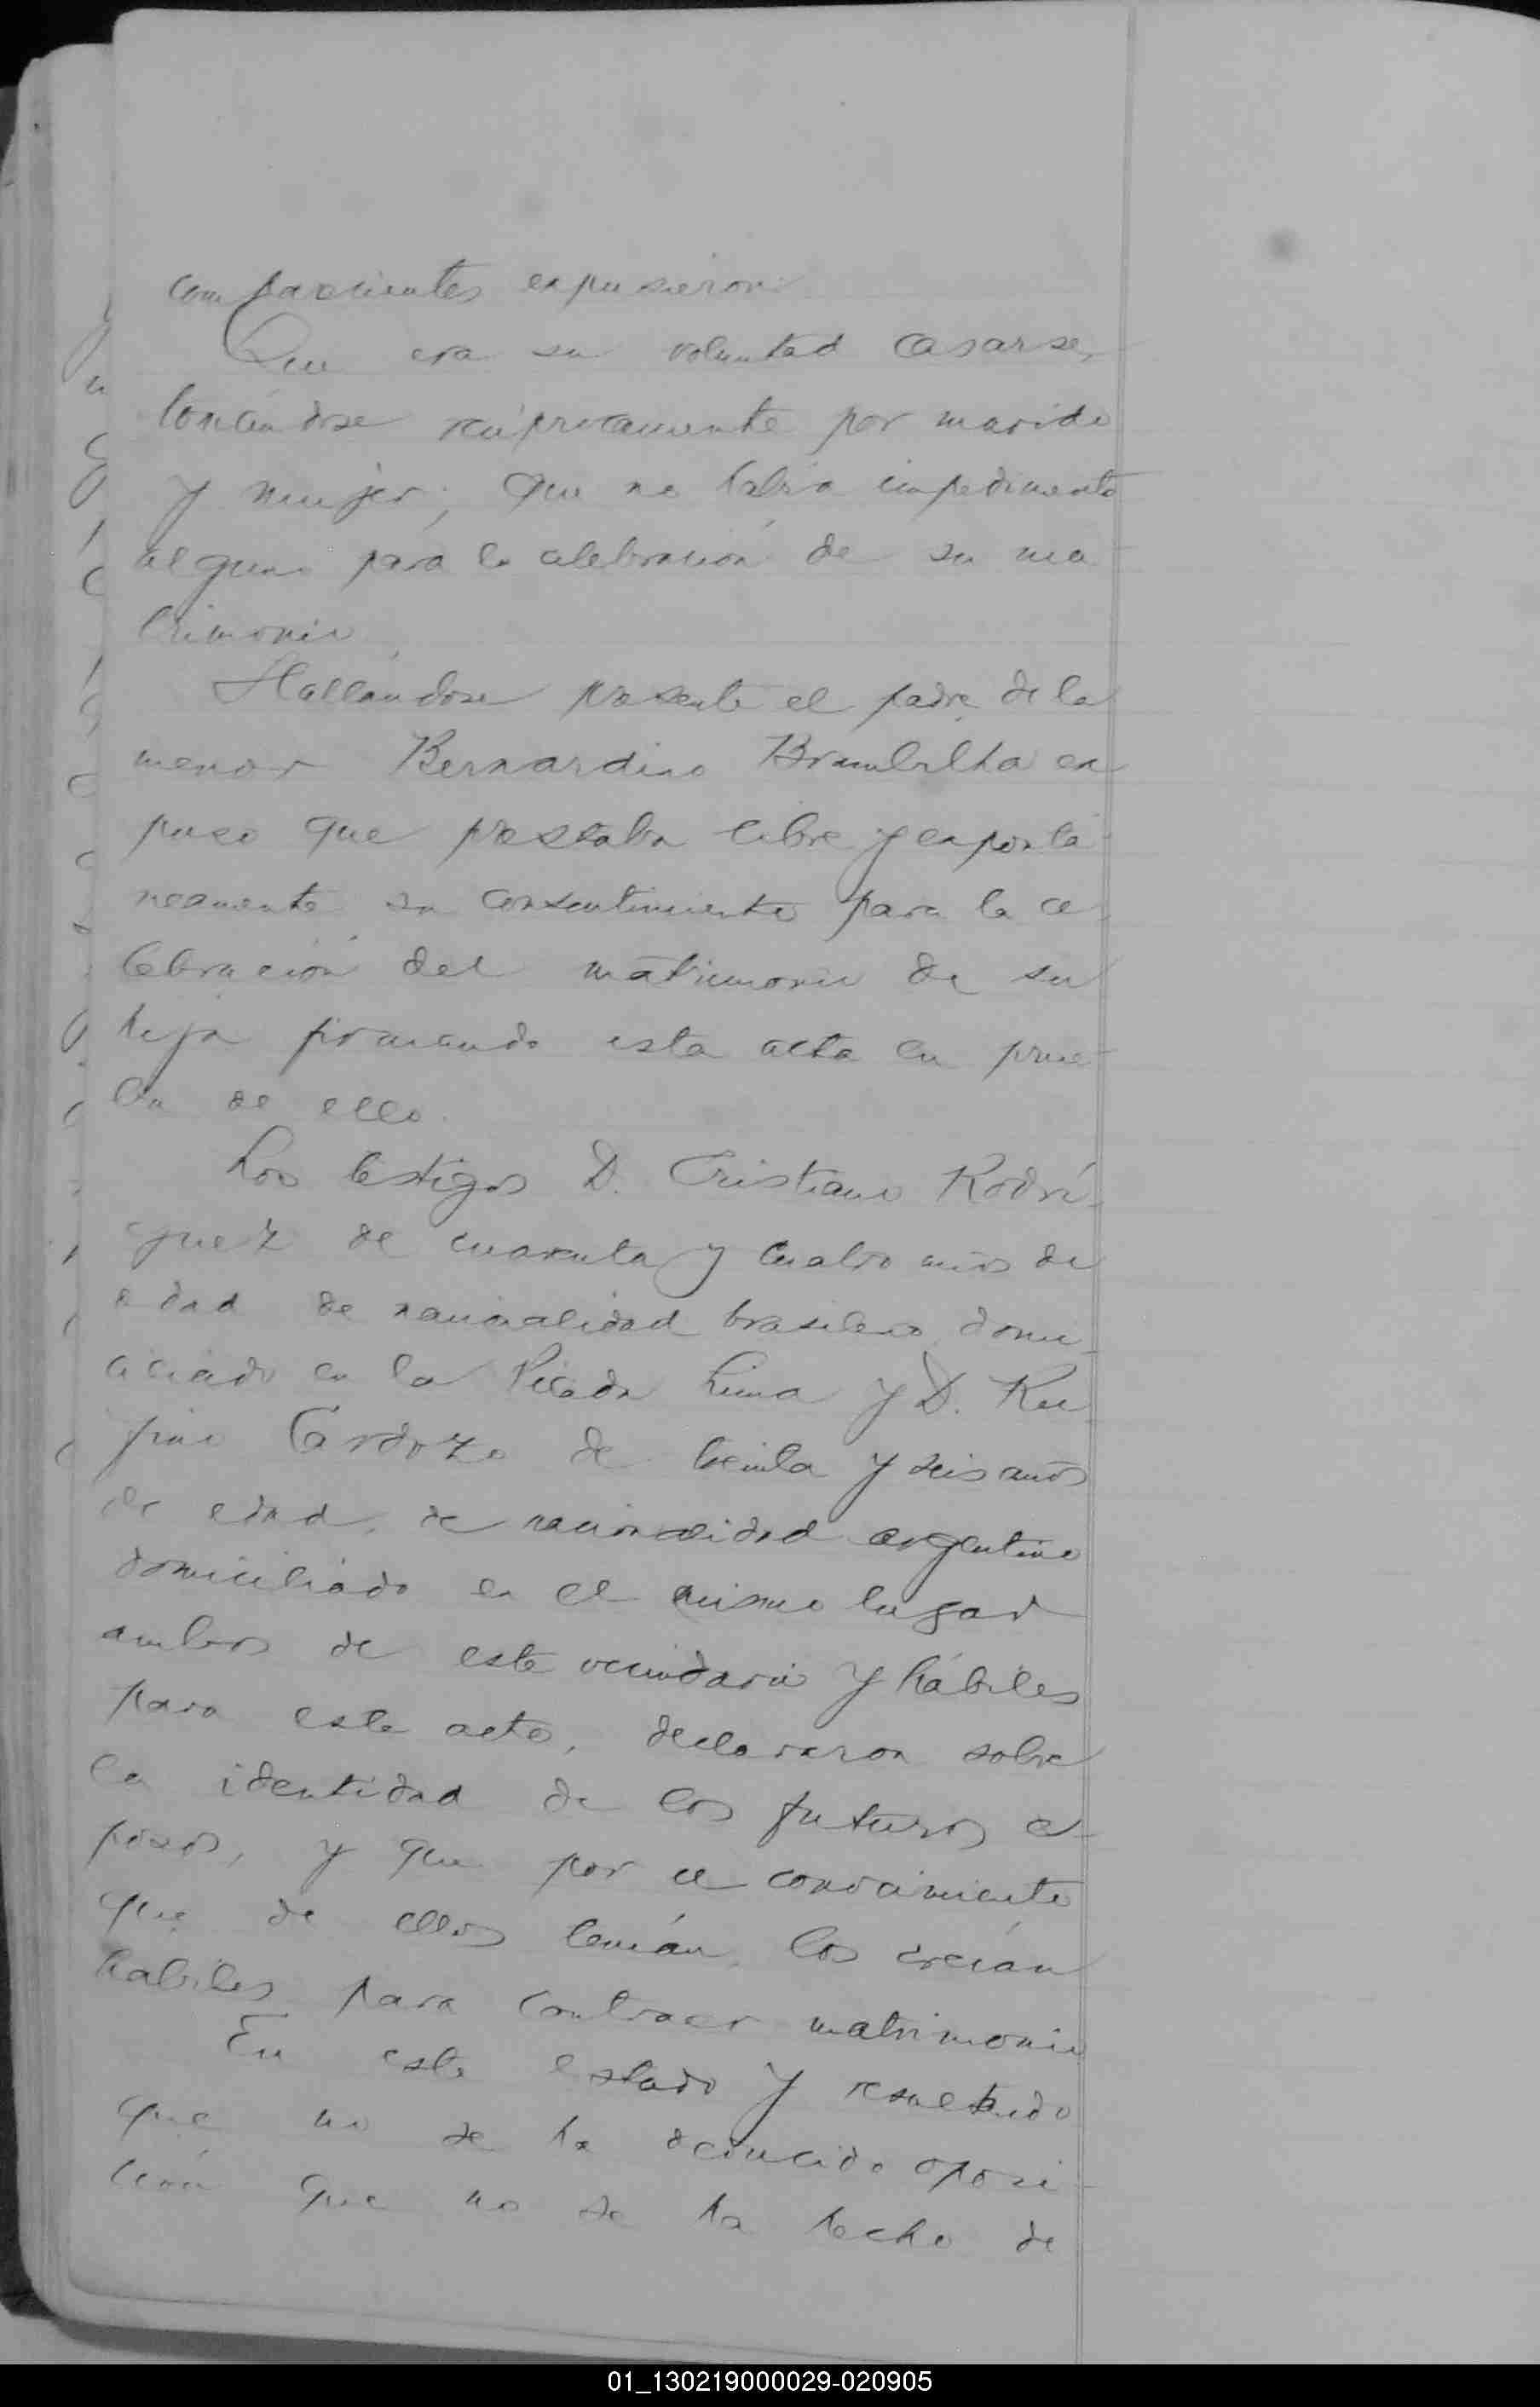 comparecientes expusieron:
Que era su voluntad casarse,
tomándose recíprocamente por marido
y mujer; que no había impedimento
alguno para la celebración de su ma
trimonio
Hallándose presente el padre de la
menor Bernardino Brumbilha ex
puso que prestaba libre y expontá
neamente su consentimiento para la ce
lebración del matrimonio de su
hija firmando esta acta en prue-
ba de ello.
Los testigos D. Cristiano Rodrí-
guez de cuarenta y cuatro años de
edad de nacionalidad brasilero domi-
ciliado en la Picada Lima y D. Ru
fino Cardozo de treinta y seis años
de edad, de nacionalidad argentino
domiciliado en el mismo lugar
ambos de este vecindario y hábiles
para este acto, declararon sobre
la identidad de los futuros es-
posos, y que por el conocimiento
que de ellos tenían, los creían
hábiles para contraer matrimonio
En este estado y resultando
que no se ha deducido oposi-
ción que no se ha hecho de
01_130219000029-020905